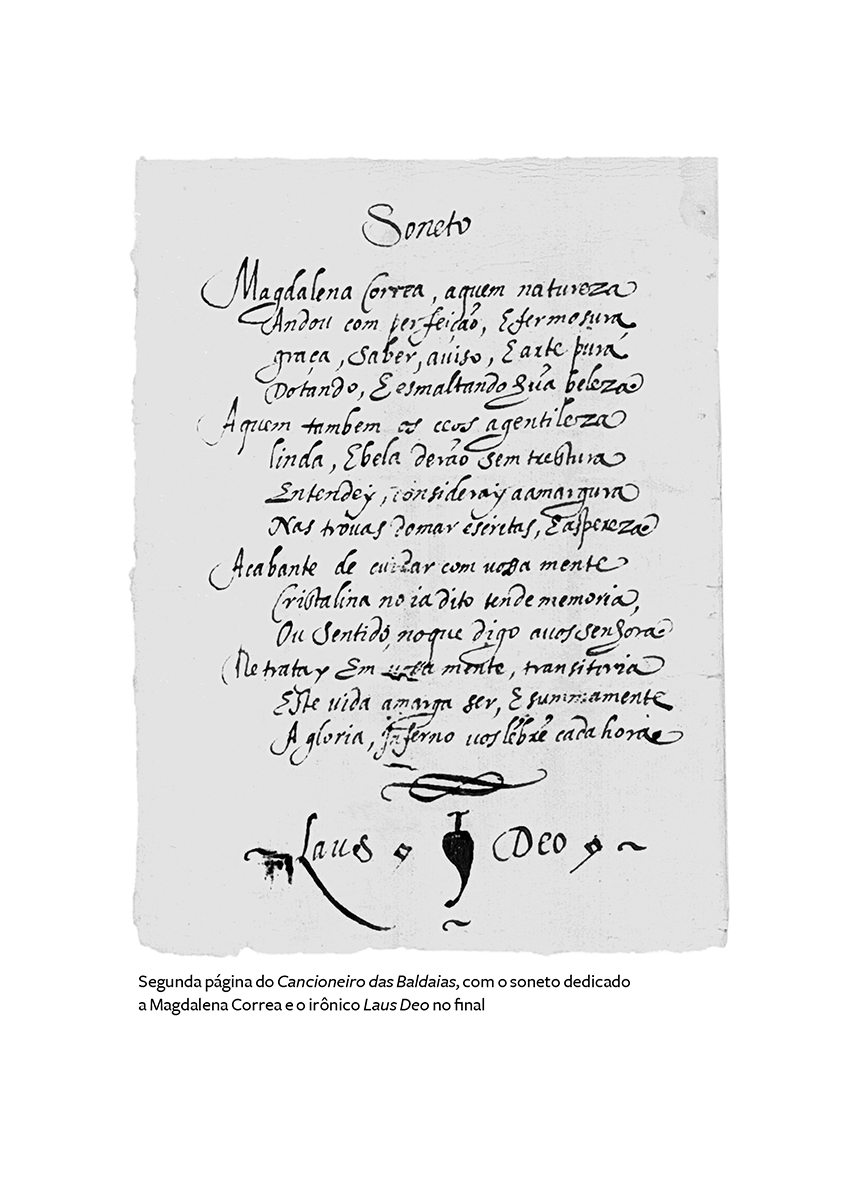 Soneto
Magdalena Correa, aquem natureza
Andou com perfeição, E fermosura
graça, Saber, aviso, E arte pura
Dotando, E esmaltando sua beleza
Aquem tambem os ceos agentileza
linda, E bela derão sem
Entendey, consideray aamargura
Nas trouas domar escritas, E aspereza
Acabante de cuidar com uossa mente
Cristalina no ia dito tende memoria,
Ou Sentido, noque digo auos senhora
Retratay Em mente, transitoria
Este vida amarga ser, E summamente
A gloria, Inferno uos lẽbrẽ cada hora
Laus Deo
Segunda página do Cancioneiro das Baldaias, com o soneto dedicado
a Magdalena Correa e o irônico Laus Deo no final